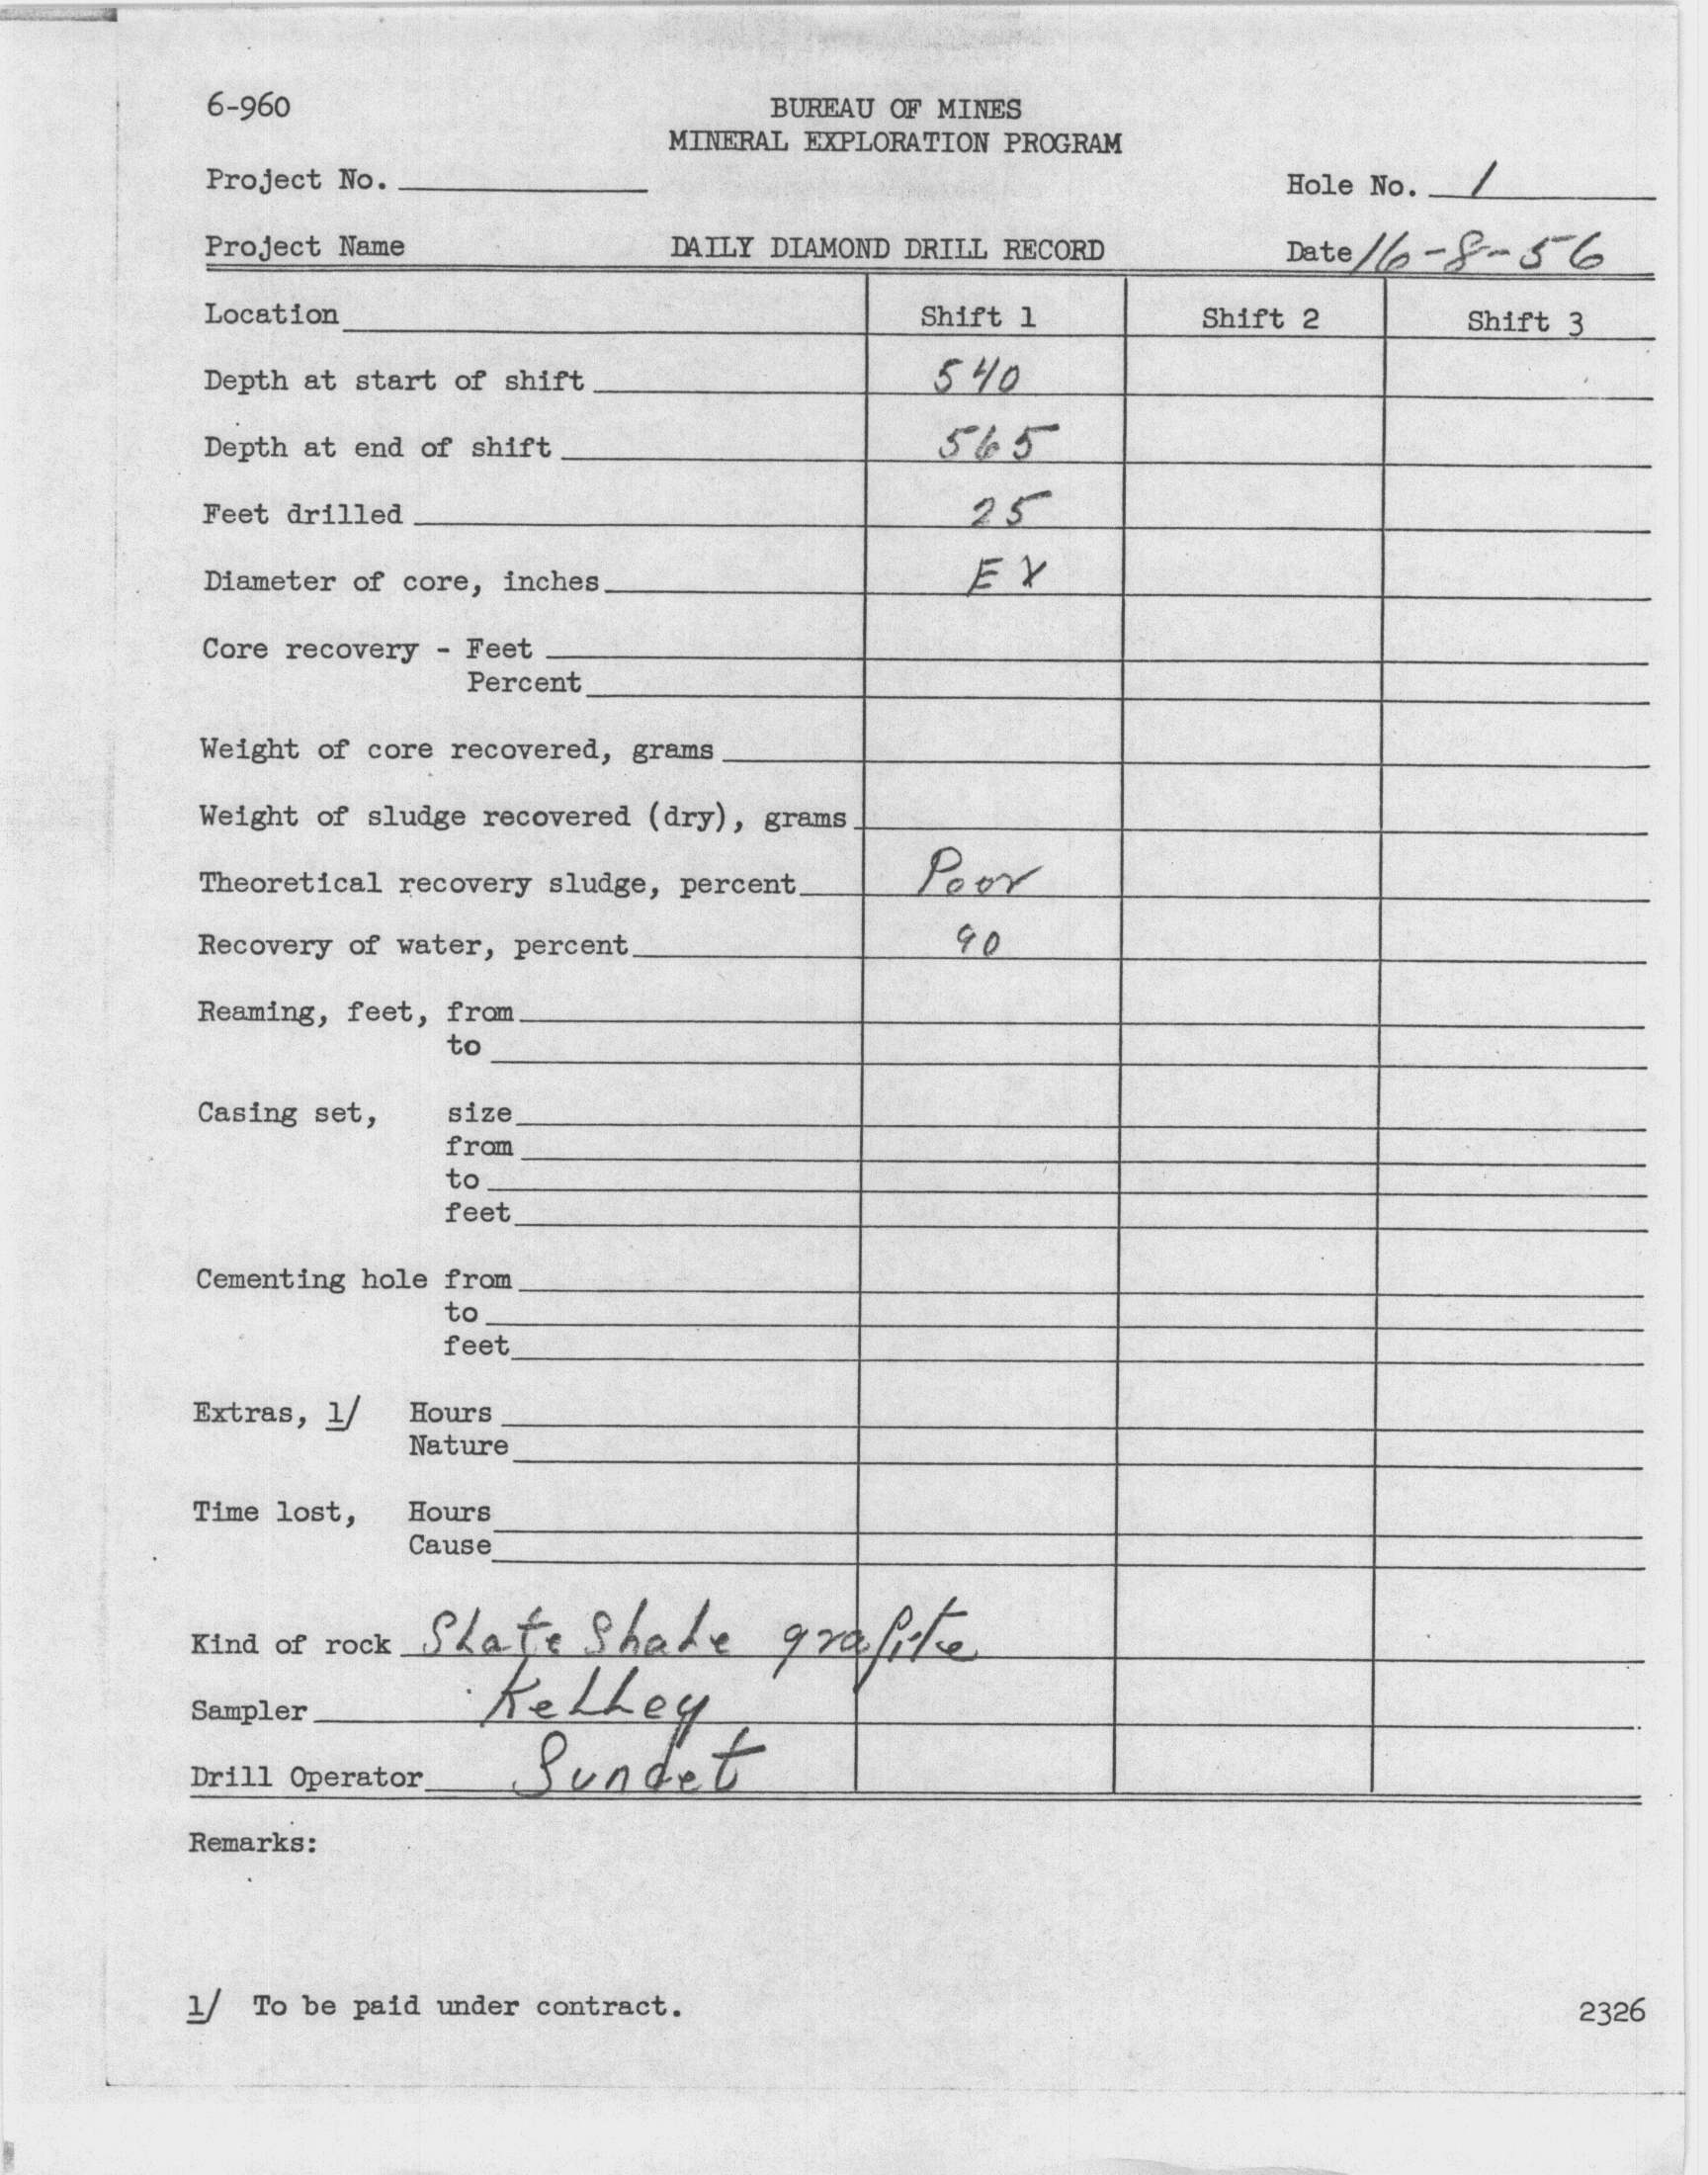 6-960
BUREAU OF MINES
MINERAL EXPLORATION PROGRAM
Project No.
Hole No. 1
Project Name DAILY DIAMOND DRILL RECORD Date 16-8-56
Location Shift 1 Shift 2 Shift 3
Depth at start of shift 540
Depth at end of shift 565
Feet drilled 25
Diameter of core, inches EX
Core recovery - Feet
Percent
Weight of core recovered, grams
Weight of sludge recovered (dry), grams
Theoretical recovery sludge, percent Poor
Recovery of water, percent 90
Reaming, feet, from
to
Casing set, size
from
to
feet
Cementing hole from
to
feet
Extras, 1/ Hours
Nature
Time lost, Hours
Cause
Kind of rock Slate Shale grafite
Sampler Kelley
Drill Operator Sundet
Remarks:
1/ To be paid under contract.
2326